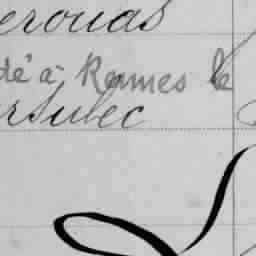 erouas
dé à Rennes le
ersulec